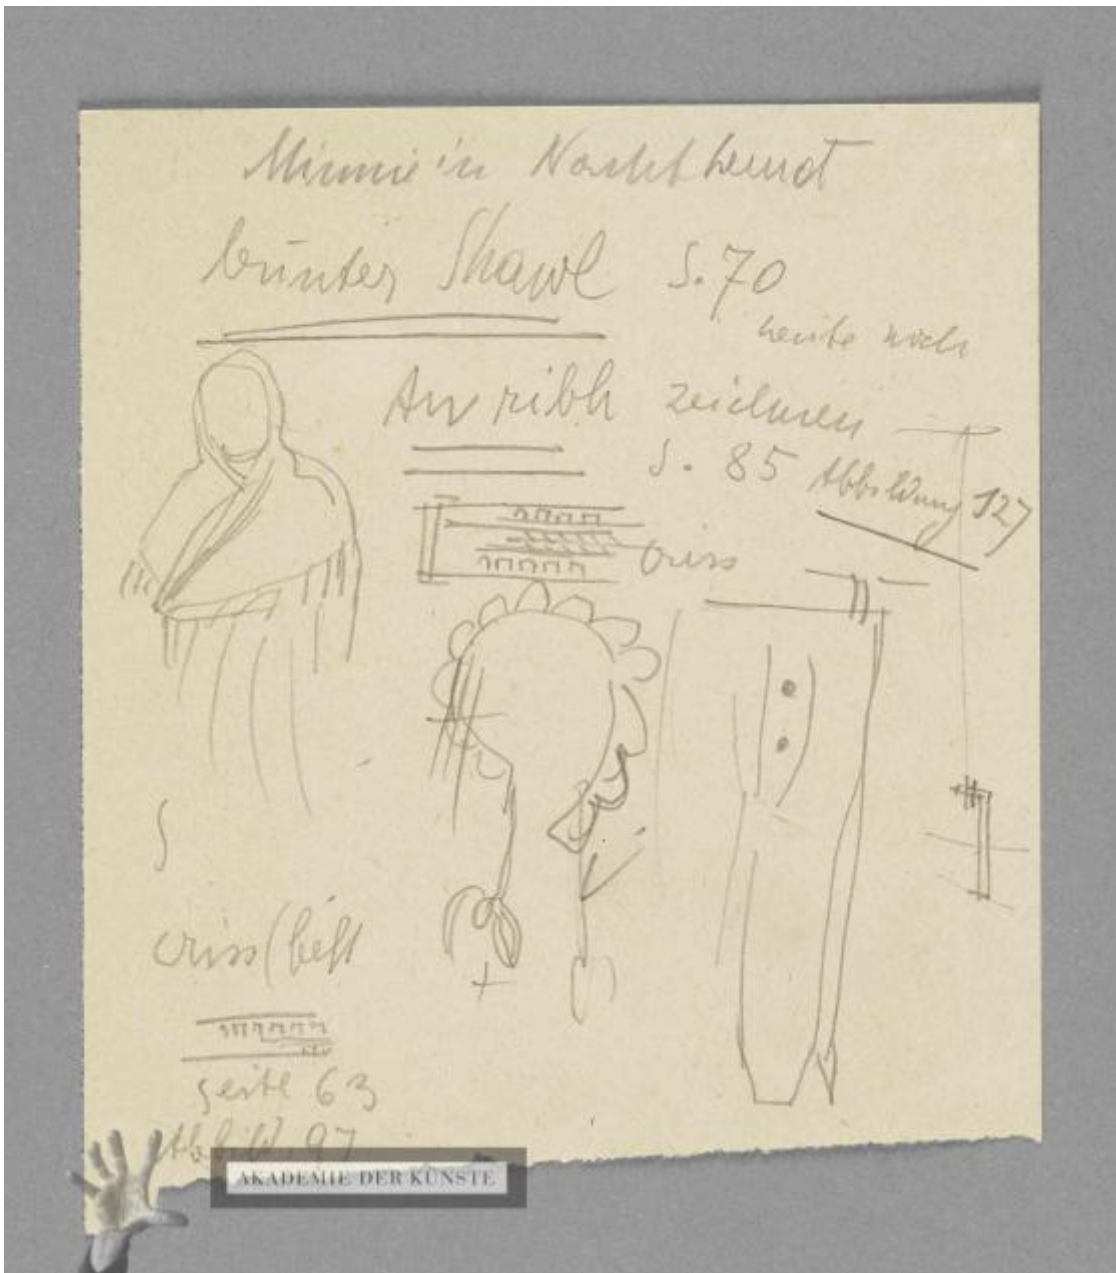 Minnie in Nachthemd
bunter Shawl S. 70
heute noch
zeichnen
S. 85 Abbildung 127
criss
criss
Seite 63
Abbild. 97
AKADEMIE DER KÜNSTE